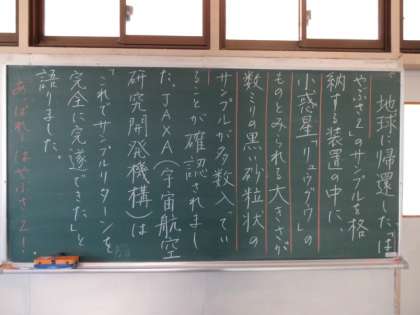 地球に帰還した「は
やぶさ２」のサンプルを格
納する装置の中に、
小惑星「リュウグウ」の
ものとみられる大きさが
数ミリの黒い砂粒状の
サンプルが多数入ってい
ることが確認されまし
た。JAXA（宇宙航空
研究開発機構）は
「これでサンプルリターンを
完全に完遂できた」と
語りました。
あっぱれ！はやぶさ２！